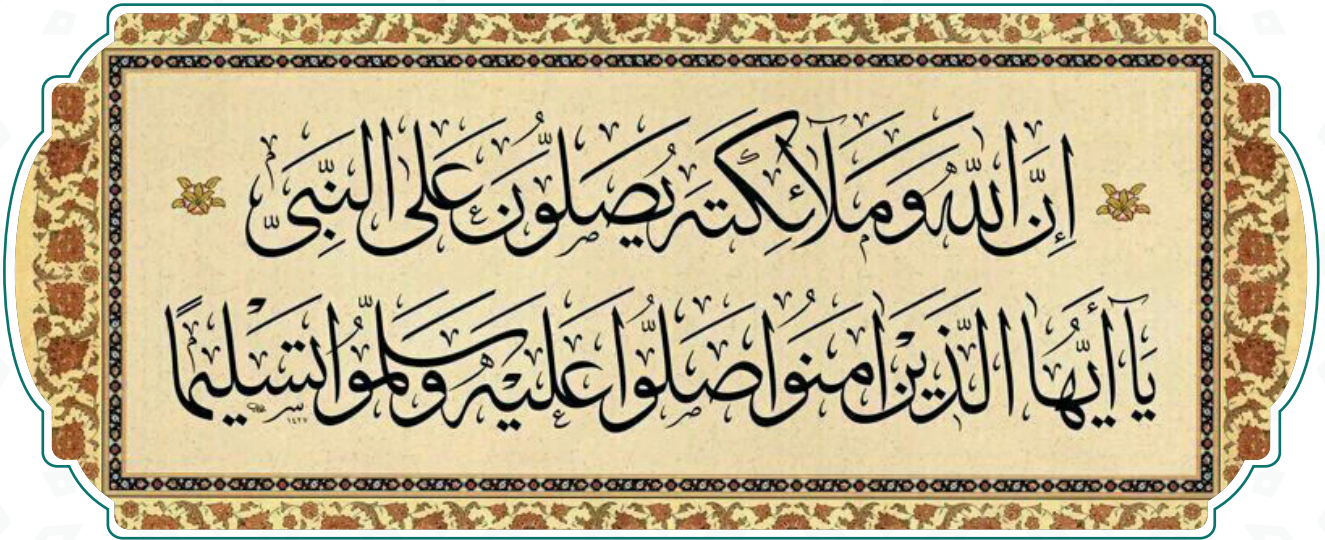 اِنَّ اللّٰهَ وَمَلَآئِكَتَهُ يُصَلُّونَ عَلَى النَّبِيِّ
يَآ أَيُّهَا الَّذِيْنَ اٰمَنُوا صَلُّوا عَلَيْهِ وَسَلِّمُوا تَسْلِيمًا
١٤٢٧